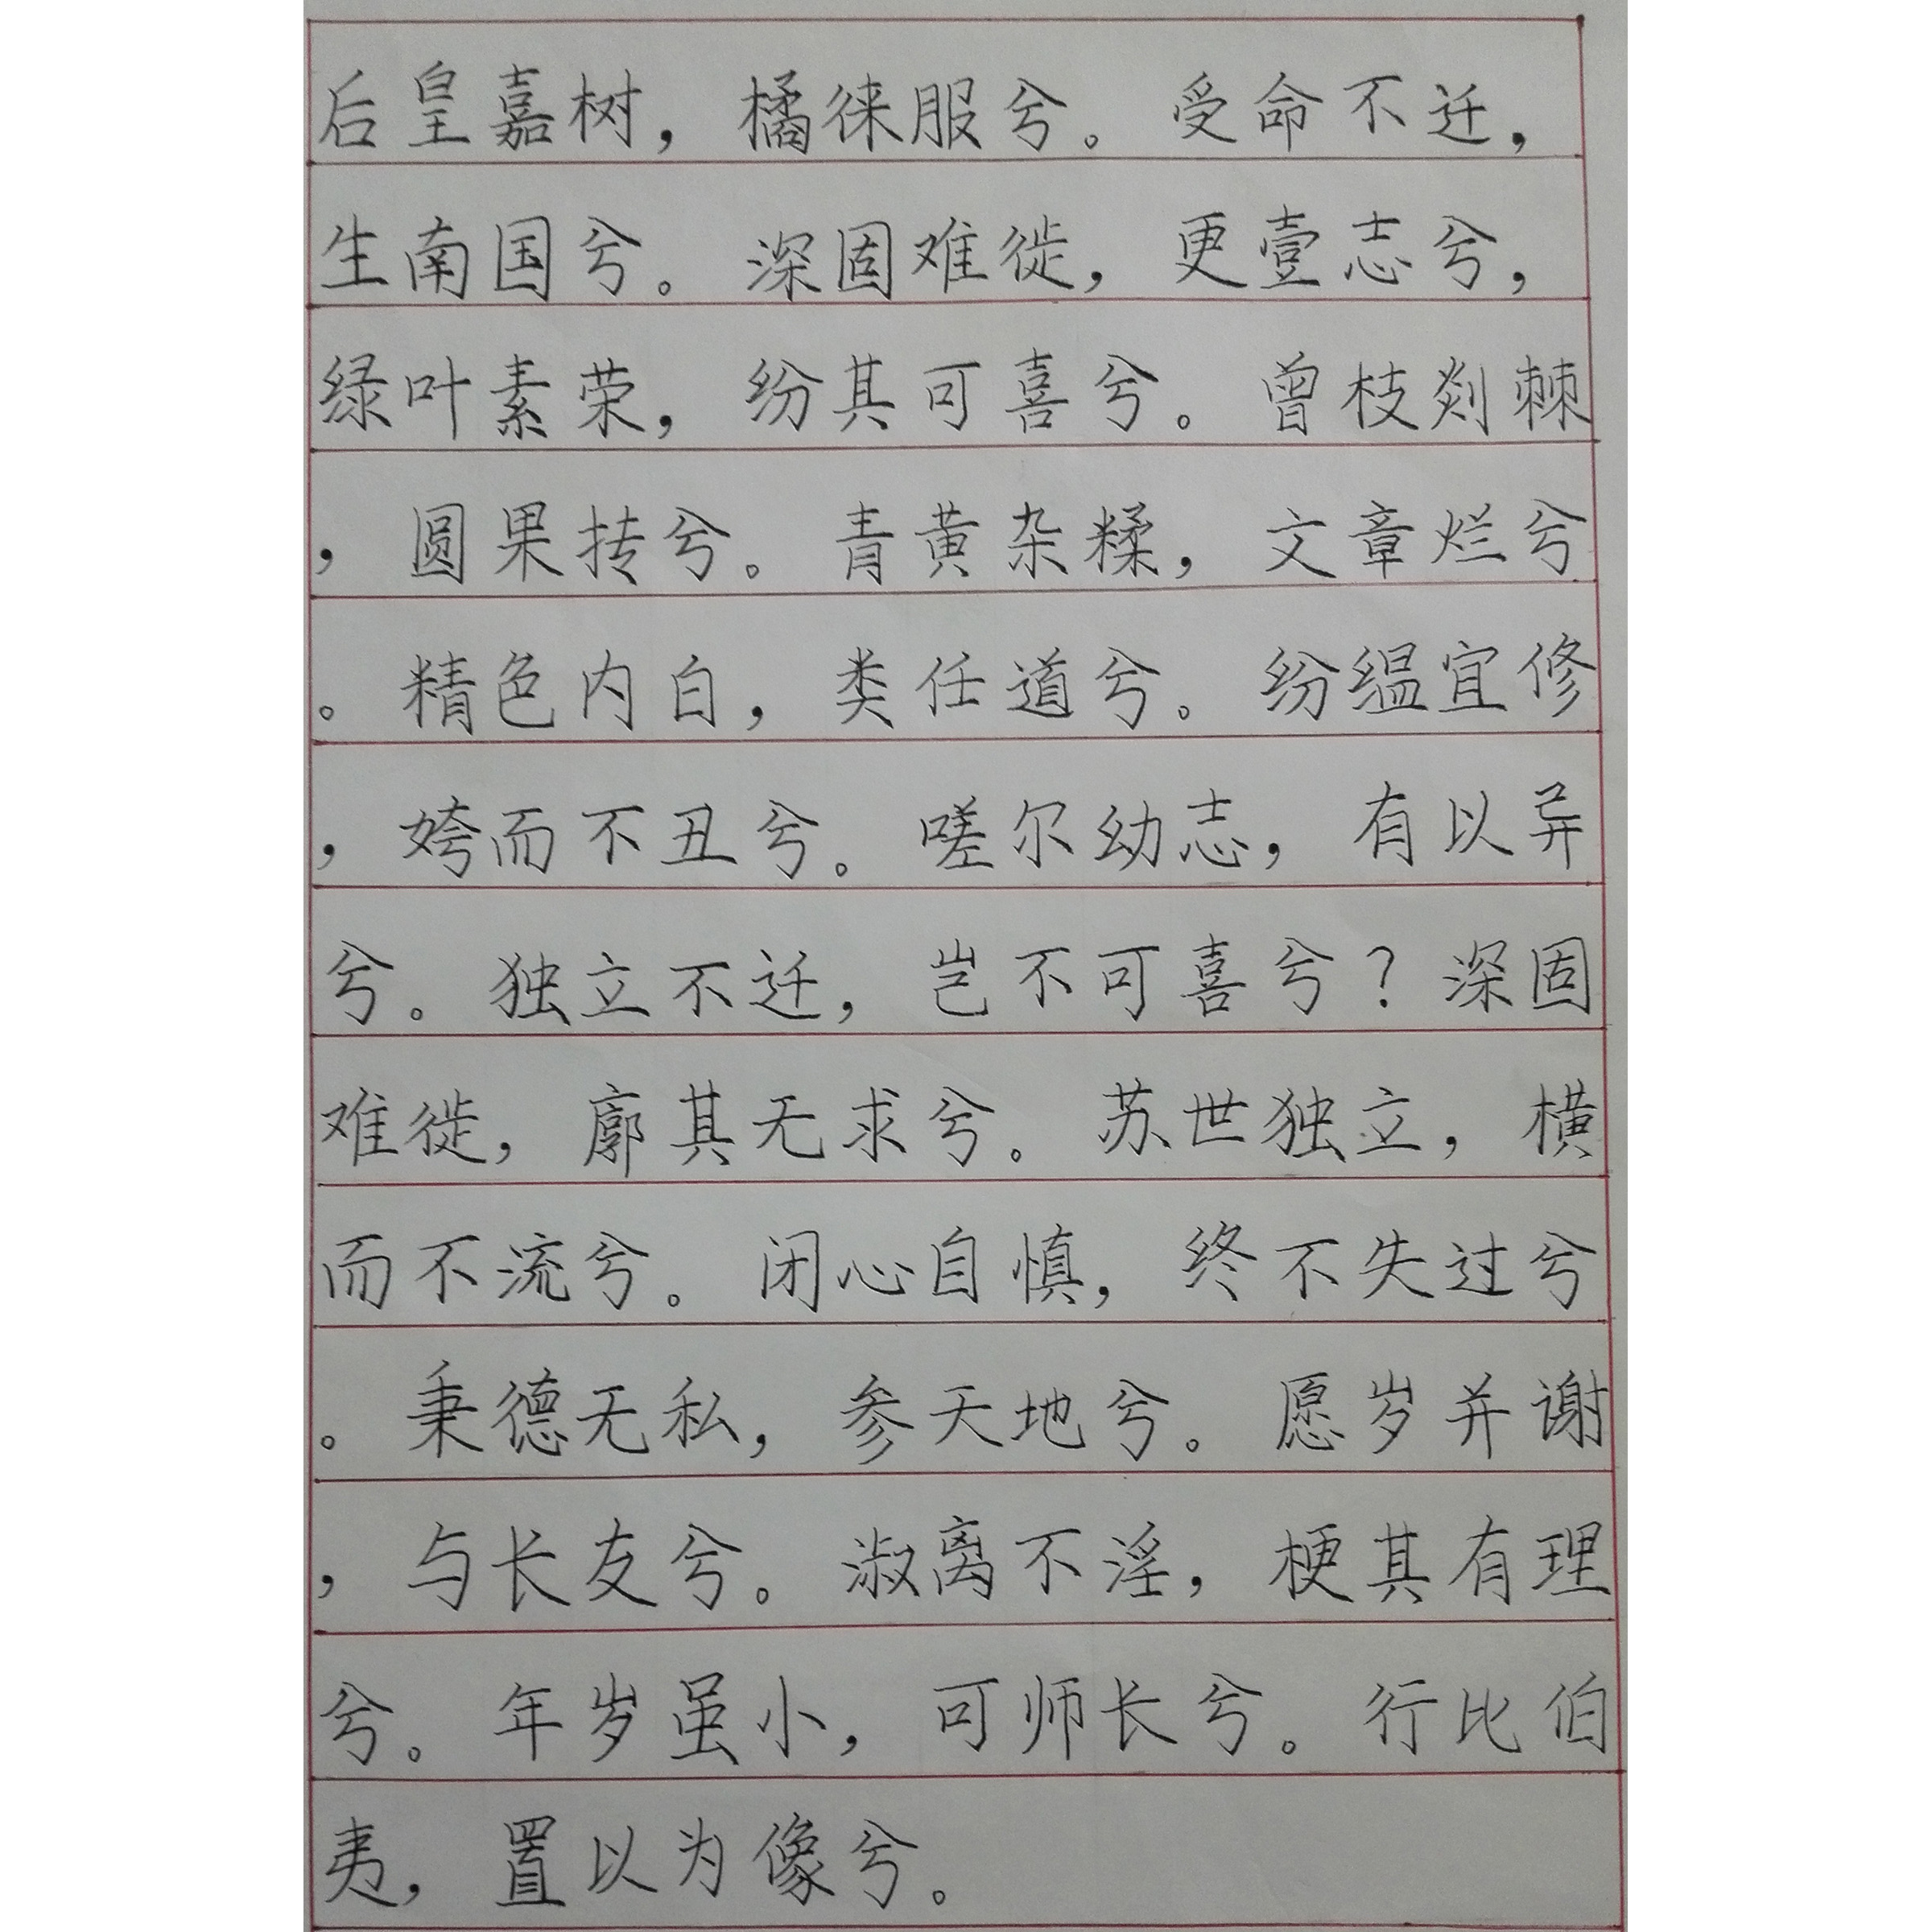 后皇嘉树，橘徕服兮。受命不迁，
生南国兮。深固难徙，更壹志兮，
绿叶素荣，纷其可喜兮。曾枝剡棘
，圆果抟兮。青黄杂糅，文章烂兮
。精色内白，类任道兮。纷缊宜修
，姱而不丑兮。嗟尔幼志，有以异
兮。独立不迁，岂不可喜兮？深固
难徙，廓其无求兮。苏世独立，横
而不流兮。闭心自慎，终不失过兮
。秉德无私，参天地兮。愿岁并谢
，与长友兮。淑离不淫，梗其有理
兮。年岁虽小，可师长兮。行比伯
夷，置以为像兮。